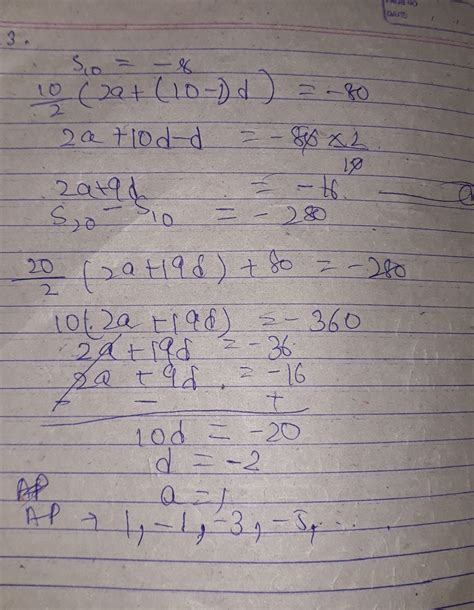 3.
S₁₀ = -8
10/2 (2a + (10-1)d) = -80
2a + 10d - d = -80 × 2/10
2a + 9d = -16.
S₂₀ - S₁₀ = -280
20/2 (2a + 19d) + 80 = -280
10(2a + 19d) = -360
2a + 19d = -36
2a + 9d = -16
- - +
10d = -20
d = -2
a = 1
AP
AP → 1, -1, -3, -5, ....